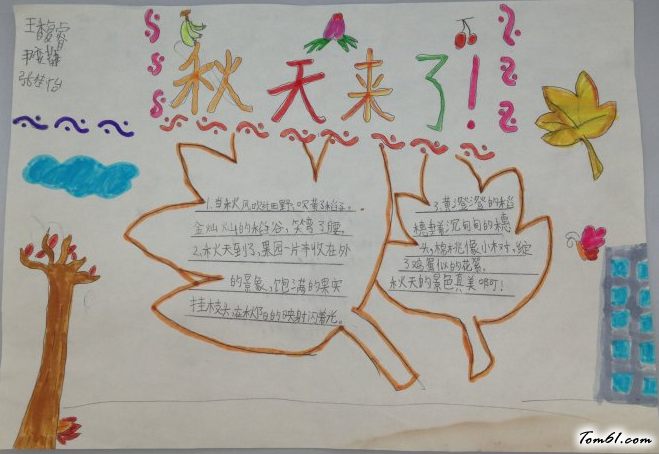 秋天来了!
王馥睿
张佳怡
1.当秋风吹过田野,吹黄了稻子,
金灿灿的稻谷,笑弯了腰
2.秋天到了,果园一片丰收在外
的景象,饱满的果实
挂枝头,在秋阳的映射闪着光。
3.黄澄澄的稻
穗垂着沉甸甸的穗
头,棉桃像小树,绽
了鸡蛋似的花絮,
秋天的景色真美啊!
Tom61.com